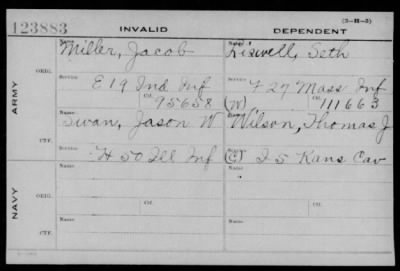 (3-H-3)
123883 INVALID DEPENDENT
ARMY
ORIG.
Name: Miller, Jacob
Service: E 19 Ind Inf
Ctf. 95658
Name: Liswell, Seth
Service: F 27 Mass Inf
(W) Ctf. 111663
CTF.
Name: Swan, Jason W
Service: H 50 Ill Inf
Name: Wilson, Thomas J
Service: (C) I 5 Kans Cav
NAVY
ORIG.
Name: Name:
Service: Ctf. Service: Ctf.
CTF.
Name: Name:
Service: Service: